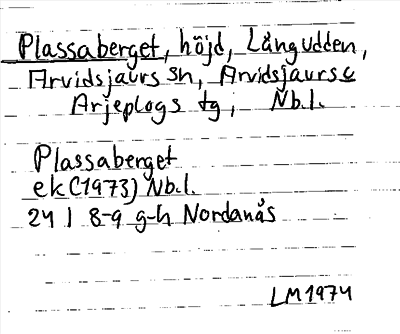 Plassaberget, höjd, Långudden,
Arvidsjaurs sn, Arvidsjaurs c
Arjeplogs tg, Nb.l.
Plassaberget
ek (1973) Nb.l.
24 I 8-9 g-h Nordanås
LM 1974